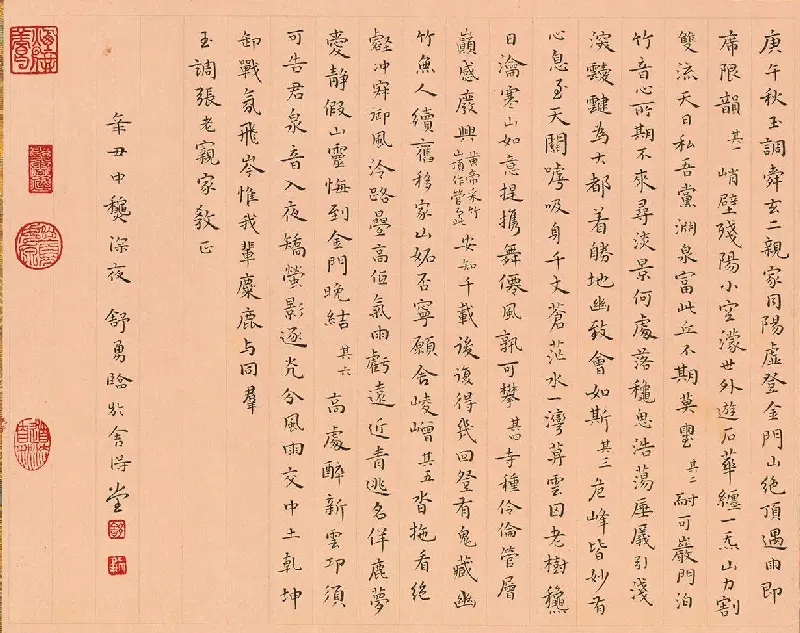 庚午秋玉調舜玄二親家同陽虛登金門山絕頂遇雨即
席限韻 其一 峭壁殘陽小空濛世外遊石華纏一炁山力割
雙流天日私吾黨淵泉富此丘不期莫 其二 耐可巖門泊
竹音心所期不來尋淡景何處落穐思浩蕩垂 引淺
深靉靆為大都着勝地幽致會如斯 其三 危峰皆妙有
心息至天關噓吸身千丈蒼茫水一灣 雲因老樹穐
日瀹寒山如意提攜舞僊風孰可攀 其四 寺種伶倫管層
巔感廢興 黃帝采竹山頂作管 安知千載後復得幾回登有鬼藏幽
竹無人續舊 移家山妬否寧願舍崚嶒 其五 沓拖看絕
壑冲 御風泠路疊高低氣雨虧遠近青逃名佯鹿夢
愛靜假山靈悔到金門晚結 其六 高處醉新雲邛須
可告君泉音入夜矯螢影逐光分風雨交中土乾坤
卸戰氛飛岑惟我輩麋鹿与同羣
玉調張老親家教正
辛丑中穐深夜 舒勇臨於舍得堂